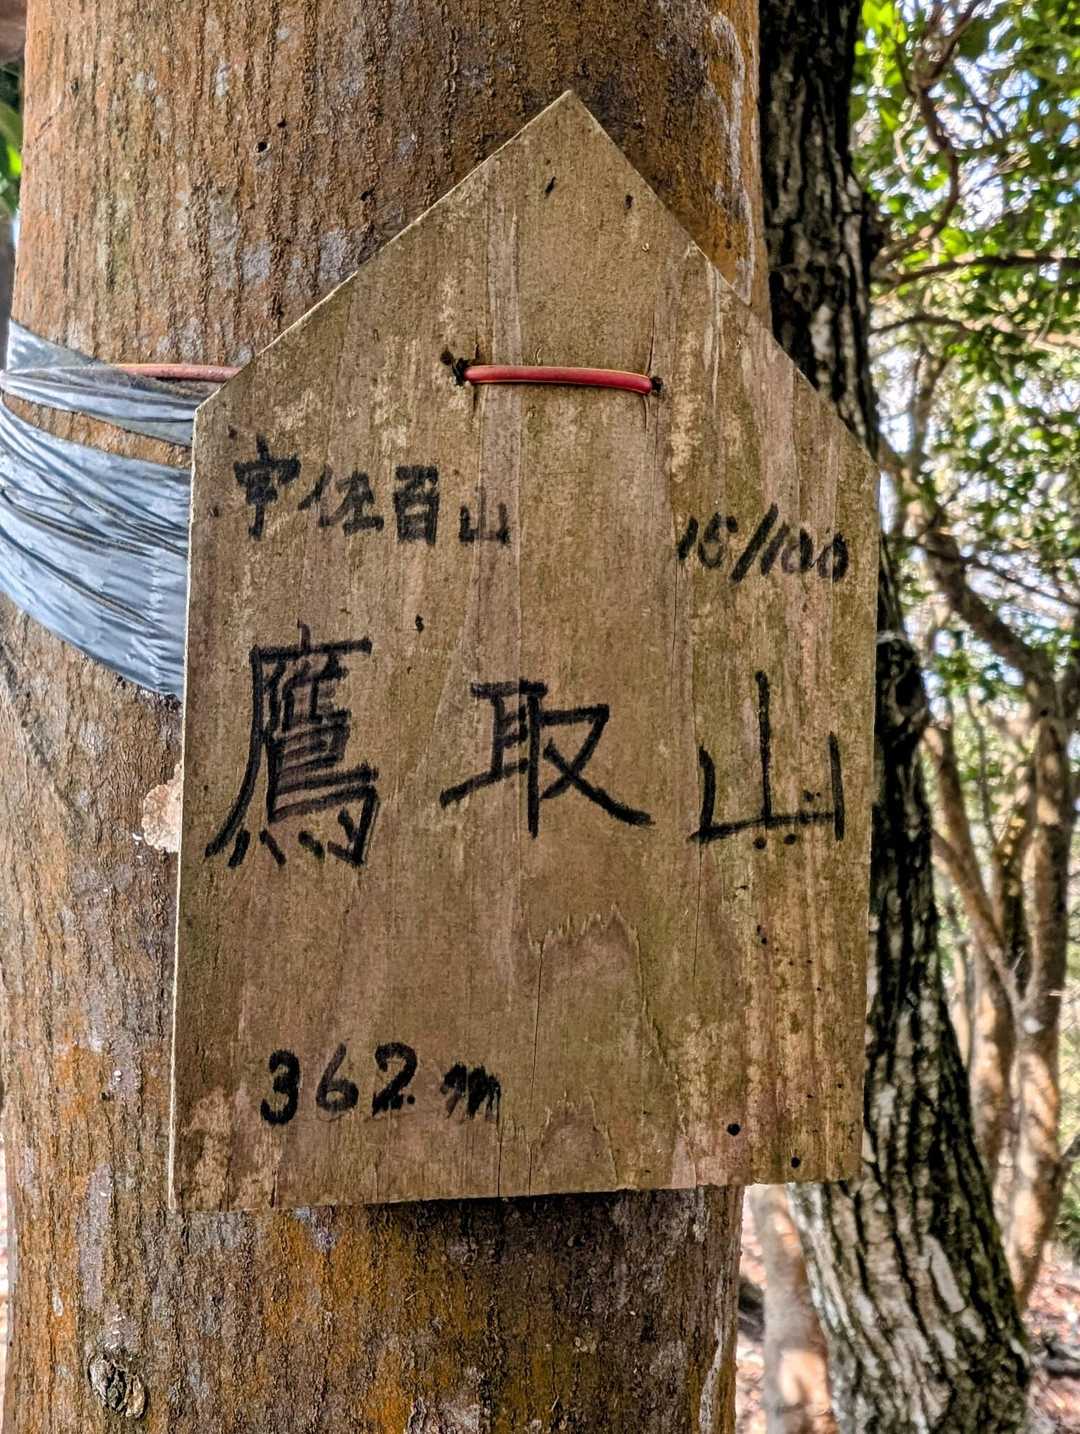 宇佐百山 15/100
鷹取山
362m